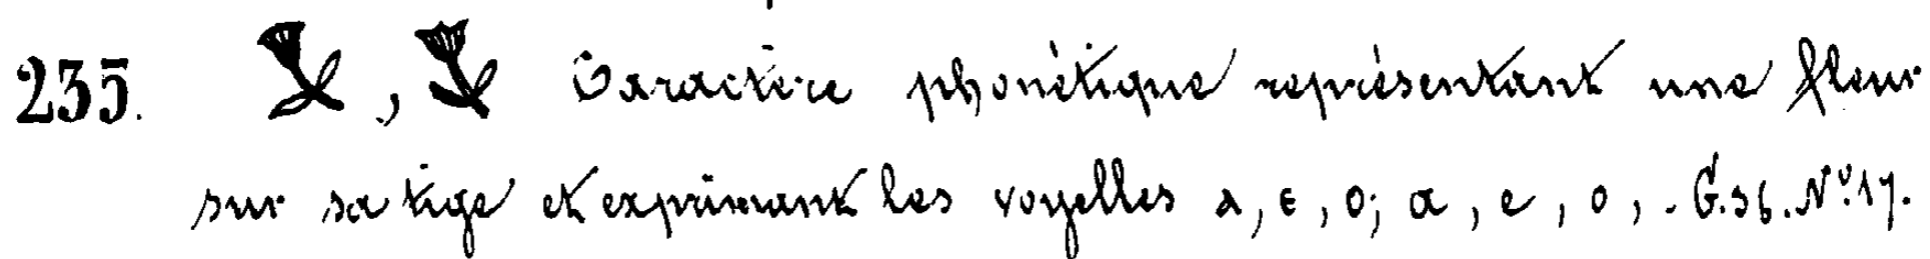 235. , Caractère phonétique représentant une fleur
sur sa tige et exprimant les voyelles ⲁ, ⲉ, ⲟ; a, e, o, . G. 36. Nº. 17.